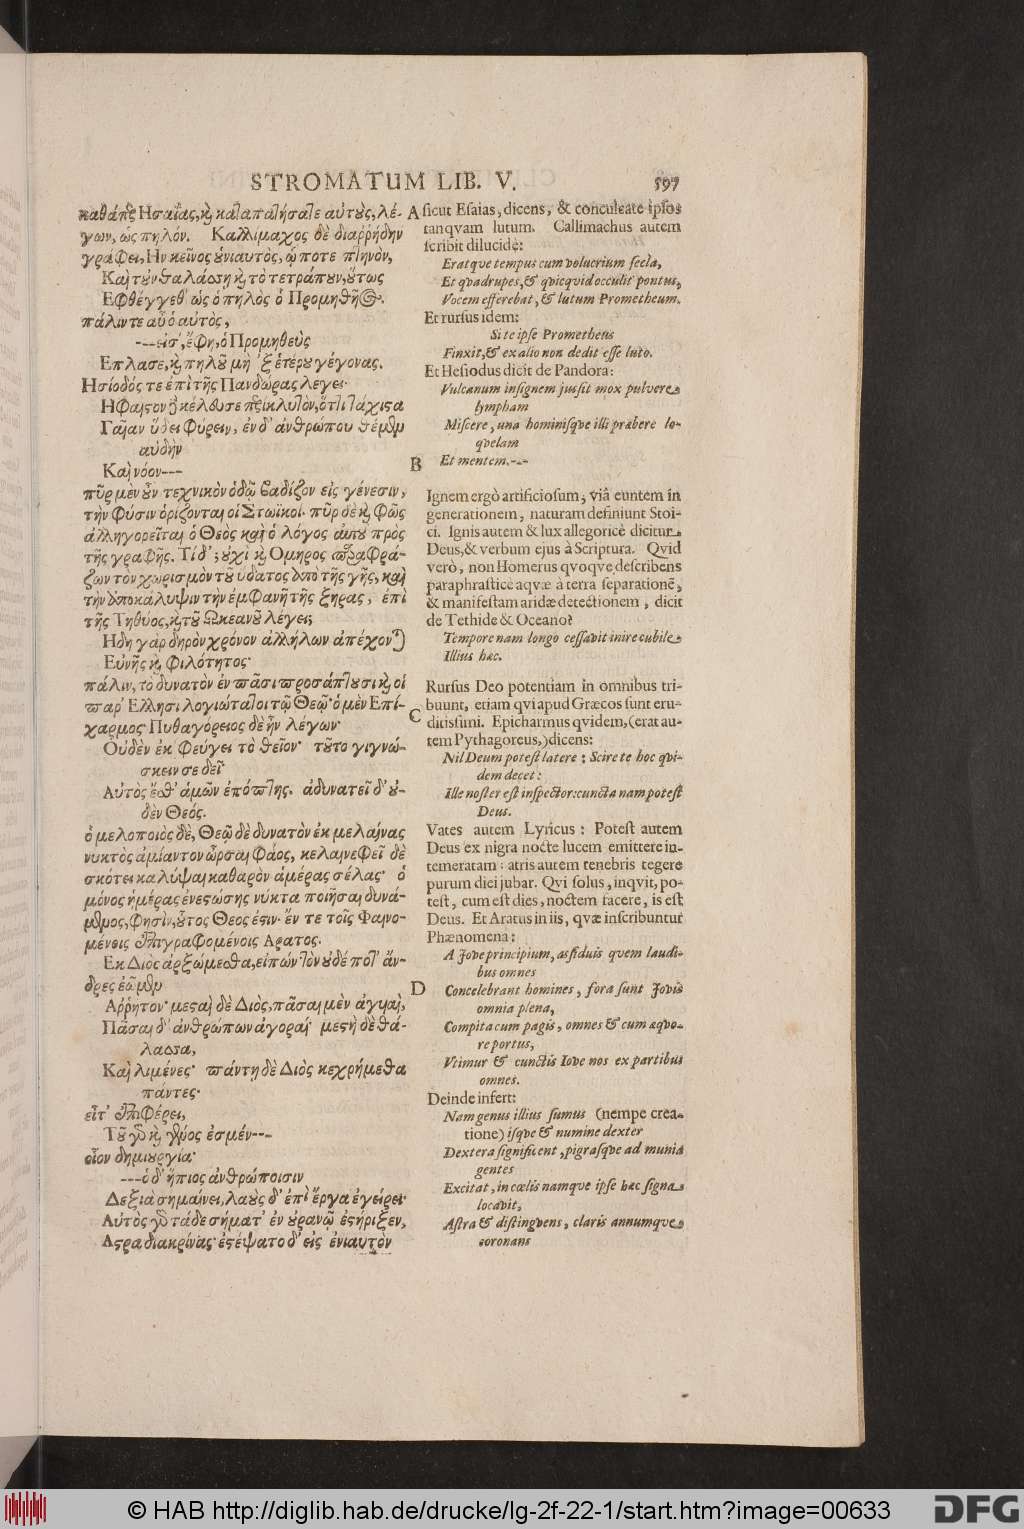 STROMATUM LIB. V. 597
καθάπερ Ησαΐας, καὶ καταπατήσατε αὐτοὺς, λέ-
γων, ὡς πηλόν. Καλλίμαχος δὲ διαρρήδην
γράφει, Ην κεῖνος οὑνιαυτὸς, ᾧ ποτε πτηνὸν,
Καὶ τὐν θαλάσσῃ καὶ τὸ τετράπουν, οὕτως
Εφθέγγεθ' ὡς ὁ πηλὸς ὁ Προμηθῆος.
πάλιν τε αὖ ὁ αὐτὸς,
---εἰσ', ἔφη, ὁ Προμηθεὺς
Επλασε, καὶ πηλοῦ μὴ 'ξ ἑτέρου γέγονας.
Ησίοδός τε ἐπὶ τῆς Πανδώρας λέγει·
Ηφαιστον δ' κέλευσε περικλυτὸν, ὅττι τάχιστα
Γαῖαν ὕδει φύρειν, ἐν δ' ἀνθρώπου θέμεν
αὐδὴν
Καὶ νόον---
πῦρ μὲν οὖν τεχνικὸν ὁδῷ βαδίζον εἰς γένεσιν,
τὴν φύσιν ὁρίζονται οἱ Στωϊκοί· πῦρ δὲ καὶ φῶς
ἀλληγορεῖται ὁ Θεὸς καὶ ὁ λόγος αὐτοῦ πρὸς
τῆς γραφῆς. Τί δ'; οὐχὶ καὶ Ομηρος παραφρά-
ζων τὸν χωρισμὸν τοῦ ὕδατος ἀπὸ τῆς γῆς, καὶ
τὴν ἀποκάλυψιν τὴν ἐμφανῆ τῆς ξηρας, ἐπὶ
τῆς Τηθύος, καὶ τοῦ Ωκεανοῦ λέγει;
Ηδη γὰρ δηρὸν χρόνον ἀλλήλων ἀπέχονται
Εὐνῆς καὶ φιλότητος·
πάλιν, τὸ δυνατὸν ἐν πᾶσι προσάπτουσι καὶ οἱ
παρ' Ελλησι λογιώτατοι τῷ Θεῷ· ὁ μὲν Επί-
χαρμος Πυθαγόρειος δὲ ἦν λέγων·
Οὐδὲν ἐκ φεύγει τὸ θεῖον· τοῦτο γιγνώ-
σκειν σε δεῖ·
Αὐτὸς ἔσθ' ἁμῶν ἐπόπτης. ἀδυνατεῖ δ' οὐ-
δὲν Θεός.
ὁ μελοποιὸς δὲ, Θεῷ δὲ δυνατὸν ἐκ μελαίνας
νυκτὸς ἀμίαντον ὦρσαι φάος, κελαινεφεῖ δὲ
σκότει καλύψαι καθαρὸν ἁμέρας σέλας· ὁ
μόνος ἡμέρας ἐνεστώσης νύκτα ποιῆσαι δυνά-
μενος, φησὶν, οὗτος Θεος ἐστιν· ἔν τε τοῖς Φαινο-
μένοις ἐπιγραφομένοις Αρατος·
Εκ Διὸς ἀρξώμεσθα, εἰπὼν τὸν οὐδέ ποτ' ἄν-
δρες ἐῶμεν
Αῤῥητον· μεσταὶ δὲ Διὸς, πᾶσαι μὲν ἀγυιαὶ,
Πᾶσαι δ' ἀνθρώπων ἀγοραί· μεστὴ δὲ θά-
λασσα,
Καὶ λιμένες· πάντη δὲ Διὸς κεχρήμεθα
πάντες·
εἶτ' ἐπιφέρει,
Τοῦ γὰρ καὶ γένος ἐσμέν---
οἷον δημιουργία·
---ὁ δ' ἤπιος ἀνθρώποισιν
Δεξιὰ σημαίνει, λαοὺς δ' ἐπὶ ἔργα ἐγείρει·
Αὐτὸς γὰρ τάδε σήματ' ἐν οὐρανῷ ἐστήριξεν,
Αστρα διακρίνας· ἐσέψατο δ' εἰς ἐνιαυτὸν
A
B
C
D
sicut Esaias, dicens, & conculcate ipsos
tanqvam lutum. Callimachus autem
scribit dilucidè:
Eratqve tempus cum volucrium secla,
Et qvadrupes, & qvicqvid occulit pontus,
Vocem efferebat, & lutum Prometheum.
Et rursus idem:
Si te ipse Prometheus
Finxit, & ex alio non dedit esse luto.
Et Hesiodus dicit de Pandora:
Vulcanum insignem jussit mox pulvere
lympham
Miscere, una hominisqve illi præbere lo-
qvelam
Et mentem.---
Ignem ergò artificiosum, viâ euntem in
generationem, naturam definiunt Stoi-
ci. Ignis autem & lux allegoricè dicitur
Deus, & verbum ejus à Scriptura. Qvid
verò, non Homerus qvoqve describens
paraphrasticè aqvæ à terra separationē,
& manifestam aridæ detectionem, dicit
de Tethide & Oceano?
Tempore nam longo cessavit inire cubile
Illius hæc.
Rursus Deo potentiam in omnibus tri-
buunt, etiam qvi apud Græcos sunt eru-
ditissimi. Epicharmus qvidem, (erat au-
tem Pythagoreus,) dicens:
Nil Deum potest latere: Scire te hoc qvi-
dem decet:
Ille noster est inspector: cuncta nam potest
Deus.
Vates autem Lyricus: Potest autem
Deus ex nigra nocte lucem emittere in-
temeratam: atris autem tenebris tegere
purum diei jubar. Qvi solus, inqvit, po-
test, cum est dies, noctem facere, is est
Deus. Et Aratus in iis, qvæ inscribuntur
Phænomena:
A Jove principium, assiduis quem laudi-
bus omnes
Concelebrant homines, fora sunt Jovis
omnia plena,
Compita cum pagis, omnes & cum æqvo-
re portus,
Vtimur & cunctis Iove nos ex partibus
omnes.
Deinde infert:
Nam genus illius sumus (nempe crea-
tione) isqve & numine dexter
Dextera significent, pigrasqve ad munia
gentes
Excitat, in cœlis namque ipse hæc signa
locavit,
Astra & distingvens, claris annumque
coronans
© HAB http://diglib.hab.de/drucke/lg-2f-22-1/start.htm?image=00633
DFG